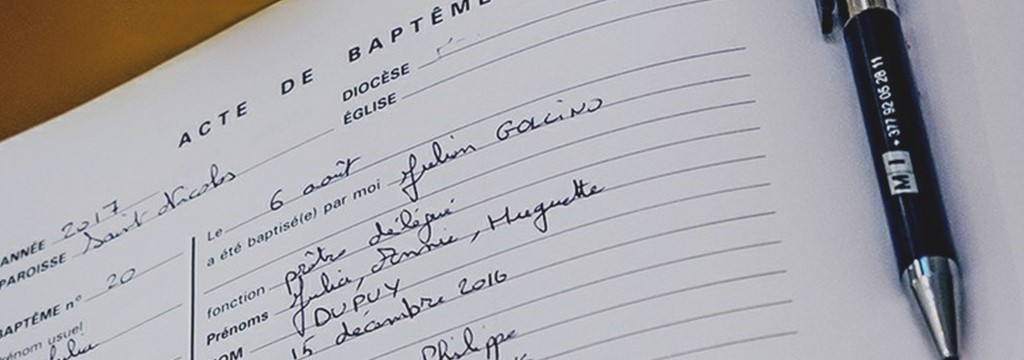 ACTE DE BAPTÊME
DIOCÈSE
ÉGLISE
ANNÉE 2017
PAROISSE Saint Nicolas
BAPTÊME n° 20
Prénom usuel
Julia
Le 6 août
a été baptisé(e) par moi Julien GOLLINO
fonction prêtre délégué
Prénoms Julia, Annie, Huguette
NOM DUPUY
15 décembre 2016
Philippe
M I • 377 92 05 28 11